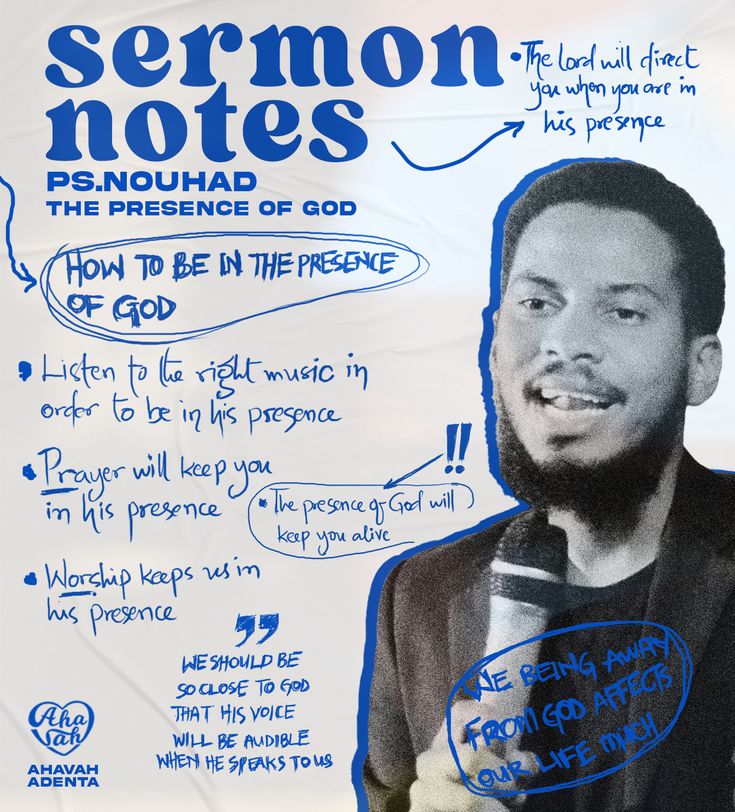 sermon
notes
PS.NOUHAD
THE PRESENCE OF GOD
• The Lord will direct
you when you are in
his presence
HOW TO BE IN THE PRESENCE
OF GOD
• Listen to the right music in
order to be in his presence
• Prayer will keep you
in his presence
!!
• The presence of God will
keep you alive
• Worship keeps us in
his presence
”
WE SHOULD BE
SO CLOSE TO GOD
THAT HIS VOICE
WILL BE AUDIBLE
WHEN HE SPEAKS TO US
WE BEING AWAY
FROM GOD AFFECTS
OUR LIFE MUCH
Aha
vah
AHAVAH
ADENTA